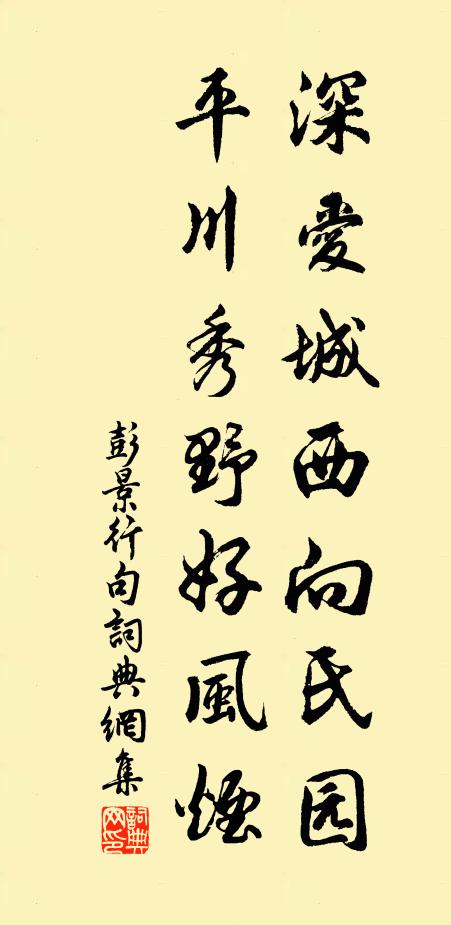 深愛城西向民园
平川秀野好風煙
彭景行句詞典網集
詞典
网印